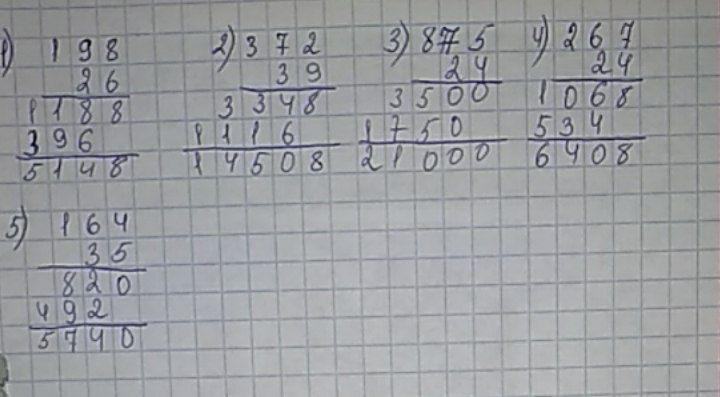 1) 198
26
1188
396
5148
2) 372
39
3348
1116
14508
3) 875
24
3500
1750
21000
4) 267
24
1068
534
6408
5) 164
35
820
492
5740